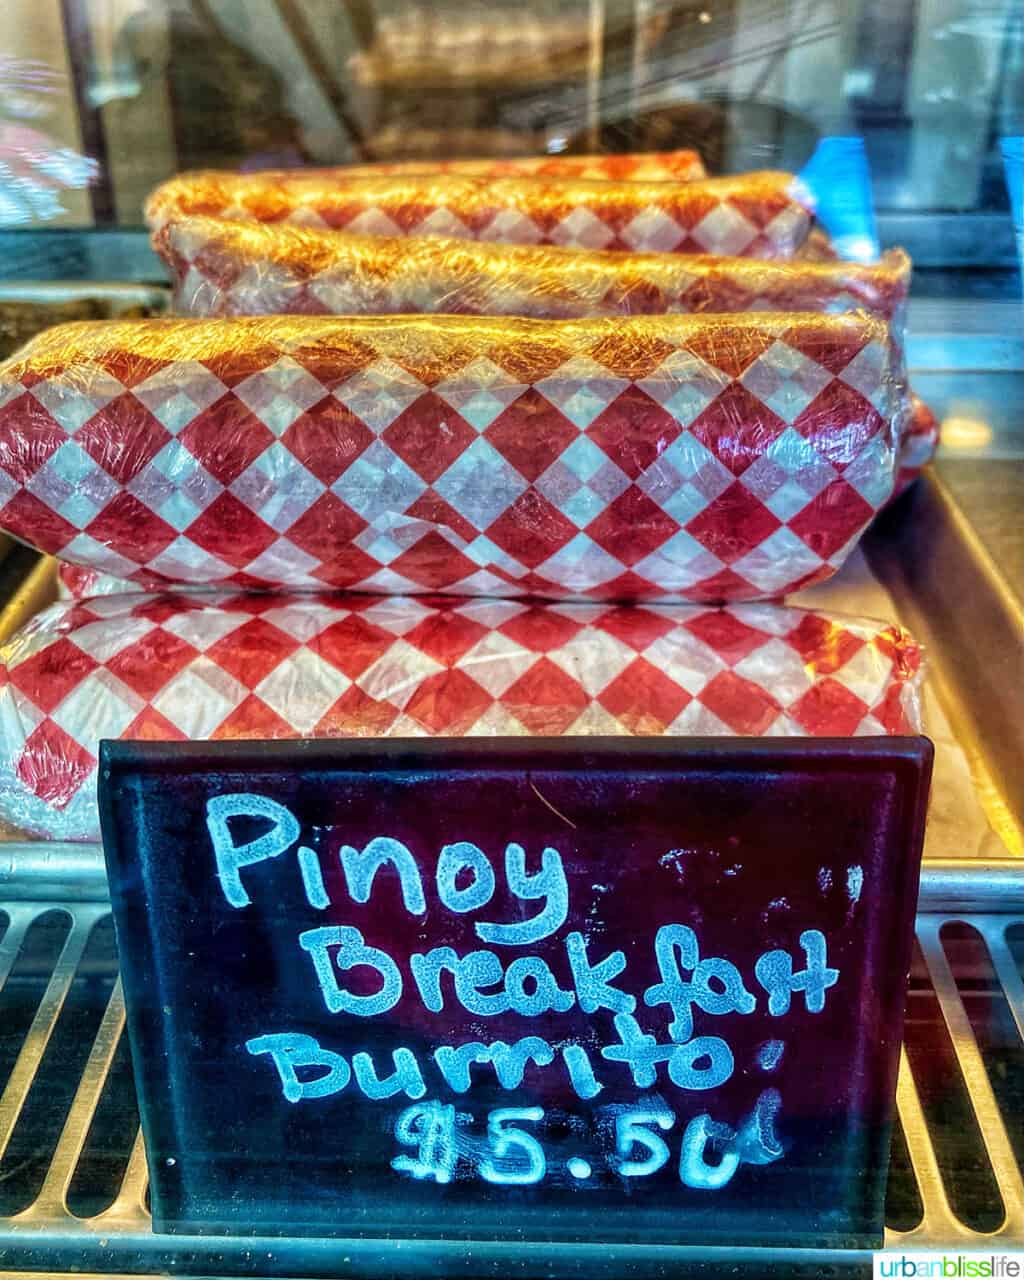 Pinoy
Breakfast
Burrito
$5.50
urbanblisslife